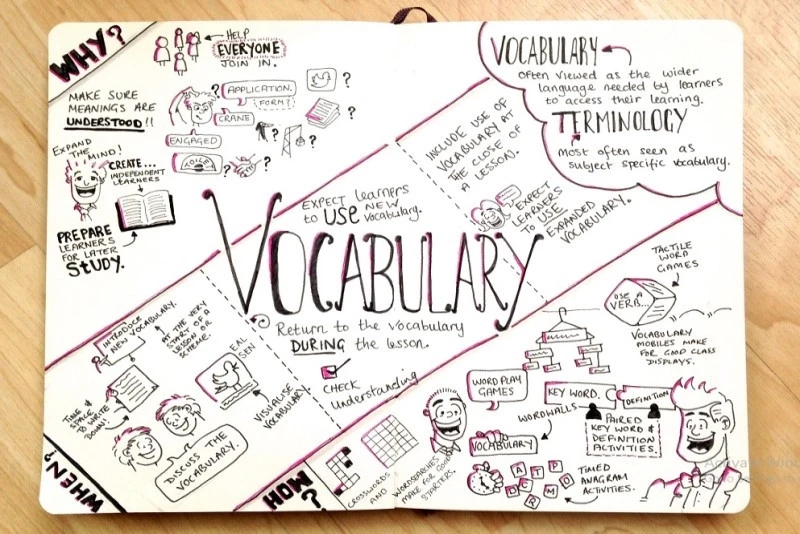 WHY?
HELP
EVERYONE
JOIN IN.
MAKE SURE
MEANINGS ARE
UNDERSTOOD!!
?
APPLICATION.
FORM?
CRANE
ENGAGED
TOILET
?
?
?
?
?
EXPAND
THE MIND!
CREATE...
INDEPENDENT
LEARNERS
PREPARE
LEARNERS
FOR LATER
STUDY.
VOCABULARY
Often viewed as the wider
language needed by learners
to access their learning.
TERMINOLOGY
most often seen as
subject specific vocabulary.
INCLUDE USE OF
VOCABULARY AT
THE CLOSE OF
A LESSON.
EXPECT
LEARNERS
TO USE
EXPANDED
VOCABULARY.
EXPECT learners
to USE NEW
Vocabulary.
VOCABULARY
Return to the vocabulary
DURING the lesson.
CHECK
Understanding
WHEN?
INTRODUCE
NEW VOCABULARY.
AT THE VERY
START OF A
LESSON OR
SCHEME.
TIME &
SPACE
TO WRITE
DOWN!
EAL
SEN
VISUALISE
VOCABULARY
DISCUSS THE
VOCABULARY.
HOW?
CROSSWORDS
AND
WORDSEARCHES
MAKE FOR GOOD
STARTERS.
WORD PLAY
GAMES
WORDWALLS
VOCABULARY
TACTILE
WORD
GAMES
USE A
VERB...
VOCABULARY
MOBILES MAKE
FOR GOOD CLASS
DISPLAYS.
KEY WORD.
DEFINITION
PAIRED
KEY WORD &
DEFINITION
ACTIVITIES.
TIMED
ANAGRAM
ACTIVITIES.